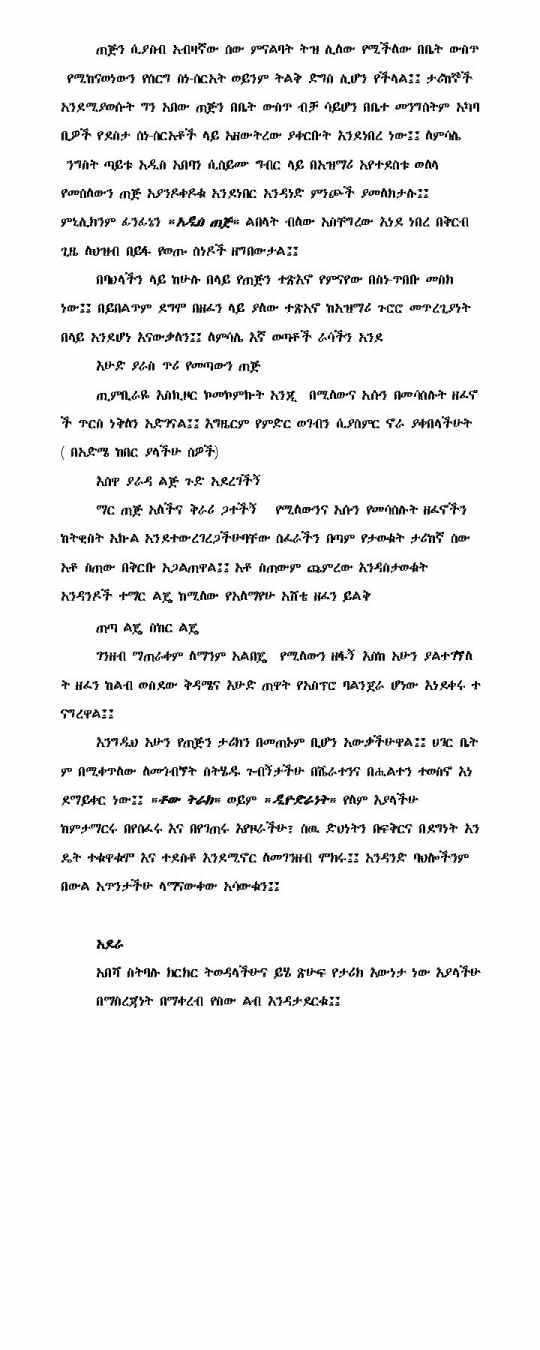 ጠጅን ሲያስብ አብዛኛው ሰው ምናልባት ትዝ ሊለው የሚችለው በቤት ውስጥ
የሚከናወነውን የሰርግ ስነ-ስርአት ወይንም ትልቅ ድግስ ሊሆን የችላል፤፤ ታሪከኞች
እንደሚያወሱት ግን አበው ጠጅን በቤት ውስጥ ብቻ ሳይሆን በቤተ መንግስትም አካባ
ቢዎች የደስታ ስነ-ስርአቶች ላይ አዘውትረው ያቀርቡት እንደነበረ ነው፤፤ ለምሳሌ
ንግስት ጣይቱ አዲስ አበባን ሲሰይሙ ግብር ላይ በአዝማሪ እየተደሰቱ ወለላ
የመሰለውን ጠጅ እያንዶቀዶቁ እንደነበር አንዳነድ ምንጮች ያመለክታሉ፤፤
ምኒሊክንም ፊንፊኔን «አዲስ ጠጅ» ልበላት ብለው አስቸግረው እነደ ነበረ በቅርብ
ጊዜ ለህዝብ በይፋ የወጡ ሰነዶች ዘግበውታል፤፤
በባህላችን ላይ ከሁሉ በላይ የጠጅን ተጽእኖ የምናየው በስነ-ጥበቡ መስክ
ነው፤፤ በይበልጥም ደግሞ በዘፈን ላይ ያለው ተጽእኖ ከአዝማሪ ጉሮሮ መጥረጊያነት
በላይ እንደሆነ እናውቃለን፤፤ ለምሳሌ እኛ ወጣቶች ራሳችን እንደ
እሁድ ያራስ ጥሪ የመጣውን ጠጅ
ጢምቢራዬ እስኪዞር ኮመኮምኩት እንጂ በሚለውና እሱን በመሳሰሉት ዘፈኖ
ች ጥርስ ነቅለን አድገናል፤፤ እግዜርም የምድር ወገብን ሲያሰምር ኖራ ያቀበላችሁት
( በእድሜ ከበር ያላችሁ ሰዎች)
እሰዋ ያራዳ ልጅ ጉድ አደረገችኝ
ማር ጠጅ አለችና ቅራሪ ጋተችኝ የሚለውንና እሱን የመሳሰሉት ዘፈኖችን
ከትዊስት እኩል እንደተውረገረጋችሁባቸው ሰፈራችን በጣም የታወቁት ታሪከኛ ሰው
አቶ ስጠው በቅርቡ አጋልጠዋል፤፤ አቶ ስጠውም ጨምረው እንዳስታወቁት
አንዳንዶች ተማር ልጄ ከሚለው የአለማየሁ እሸቴ ዘፈን ይልቅ
ጠጣ ልጄ ስከር ልጄ
ገንዘብ ማጠራቀም ለማንም አልበጄ የሚለውን ዘፋኝ እስከ አሁን ያልተገኘለ
ት ዘፈን ከልብ ወስደው ቅዳሜና እሁድ ጠዋት የአስፕሮ ባልንጀራ ሆነው እነደቀሩ ተ
ናግረዋል፤፤
እንግዲህ አሁን የጠጅን ታሪክን በመጠኑም ቢሆን አውቃችሁዋል፤፤ ሀገር ቤት
ም በሚቀጥለው ለመጎብኘት ስትሄዱ ጉብኝታችሁ በሸራተንና በሒልተን ተወስኖ እነ
ደማይቀር ነው፤፤ «ቶው ትራክ» ወይም «ዲዮድራነት» የለም እያላችሁ
ከምታማርሩ በየሰፈሩ እና በየገጠሩ እየዞራችሁ፣ ሰዉ ድህነትን በፍቅርና በደግነት እን
ዴት ተቁዋቁሞ እና ተደስቶ እንደሚኖር ለመገንዘብ ሞክሩ፤፤ አንዳንድ ባህሎችንም
በውል አጥንታችሁ ላማናውቀው አሳውቁን፤፤
አደራ
አበሻ ስትባሉ ክርክር ትወዳላችሁና ይሄ ጽሁፍ የታሪክ እውነታ ነው እያላችሁ
በማስረጃነት በማቀረብ የሰው ልብ እንዳታደርቁ፤፤